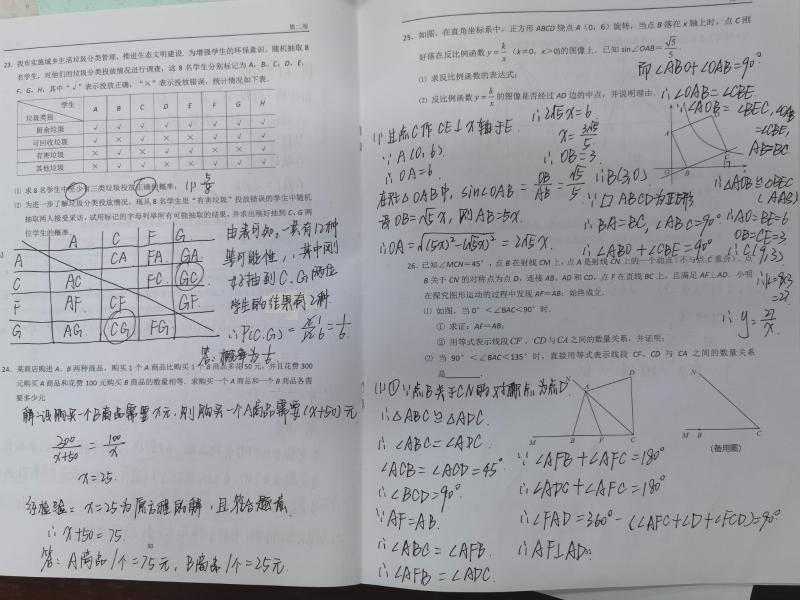 第二部
23. 我市实施城乡生活垃圾分类管理，推进生态文明建设. 为增强学生的环保意识，随机抽取 8
名学生，对他们的垃圾分类投放情况进行调查，这 8 名学生分别标记为 A，B，C，D，E，
F，G，H，其中“√”表示投放正确，“×”表示投放错误，统计情况如下表.
学生
垃圾类别
A B C D E F G H
厨余垃圾
可回收垃圾
有害垃圾
其他垃圾
(1) 求 8 名学生中至少有三类垃圾投放正确的概率；
(1) 5/8
(2) 为进一步了解垃圾分类投放情况，现从 8 名学生里“有害垃圾”投放错误的学生中随机
抽取两人接受采访，试用标记的字母列举所有可能抽取的结果，并求出刚好抽到 C、G 两
位学生的概率.
A C F G
A CA FA GA
C AC FC GC
F AF CF GF
G AG CG FG
由表可知，一共有12种
等可能性，其中刚
好抽到C、G两位
学生的结果有2种
∴P(C.G) = 2/12 = 1/6
答：概率为1/6
24. 某商店购进 A、B 两种商品，购买 1 个 A 商品比购买 1 个 B 商品多花 50 元，并且花费 300
元购买 A 商品和花费 100 元购买 B 商品的数量相等. 求购买一个 A 商品和一个 B 商品各需
要多少元
解：设购买一个B商品需要x元，则购买一个A商品需要(x+50)元
300/(x+50) = 100/x
x=25.
经检验：x=25为原方程的解，且符合题意
∴ x+50=75.
答：A商品1个=75元，B商品1个=25元.
30
25. 如图，在直角坐标系中，正方形 ABCD 绕点 A（0，6）旋转，当点 B 落在 x 轴上时，点 C 刚
好落在反比例函数 y=k/x（k≠0，x>0)的图像上. 已知 sin∠OAB=√5/5.
(1) 求反比例函数的表达式；
(2) 反比例函数 y=k/x 的图像是否经过 AD 边的中点，并说明理由.
(1) 过点C作CE⊥x轴于E.
∵A(0,6)
∴OA=6
在Rt△OAB中，sin∠OAB = OB/AB = √5/5
设OB=√5x，则AB=5x.
∴OA=√((5x)²-(√5x)²) = 2√5x
∴2√5x=6
x=3√5/5
∴OB=3.
∴B(3,0)
∵口ABCD为正方形
∴BA=BC，∠ABC=90°
∴∠ABO+∠CBE=90°
而∠ABO+∠OAB=90°
∴∠OAB=∠CBE.
∵∠AOB=∠BEC, ∠OAB
=∠CBE,
AB=BC
∴△AOB≌△BEC
(AAS)
∴AO=BE=6
OB=CE=3.
∴C(9,3)
∴k=9×3
=27
∴ y=27/x
26. 已知∠MCN=45°，点 B 在射线 CM 上，点 A 是射线 CN 上的一个动点（不与点 C 重合）. 点
B 关于 CN 的对称点为点 D，连接 AB、AD 和 CD，点 F 在直线 BC 上，且满足 AF⊥AD. 小明
在探究图形运动的过程中发现 AF=AB：始终成立.
(1) 如图，当 0°＜∠BAC＜90°时.
① 求证：AF=AB；
② 用等式表示线段 CF、CD 与 CA 之间的数量关系，并证明；
(2) 当 90°＜∠BAC＜135°时，直接用等式表示线段 CF、CD 与 CA 之间的数量关系
是
N
A D
M B F C
N
M B C
(备用图)
(1)①∵点B关于CN的对称点为点D
∴△ABC≌△ADC.
∴∠ABC=∠ADC.
∠ACB=∠ACD=45°
∴∠BCD=90°
∵AF=AB.
∴∠ABC=∠AFB.
∴∠AFB=∠ADC.
∵∠AFB+∠AFC=180°
∴∠ADC+∠AFC=180°
∴∠FAD=360°-(∠AFC+∠D+∠FCD)=90°
∴AF⊥AD